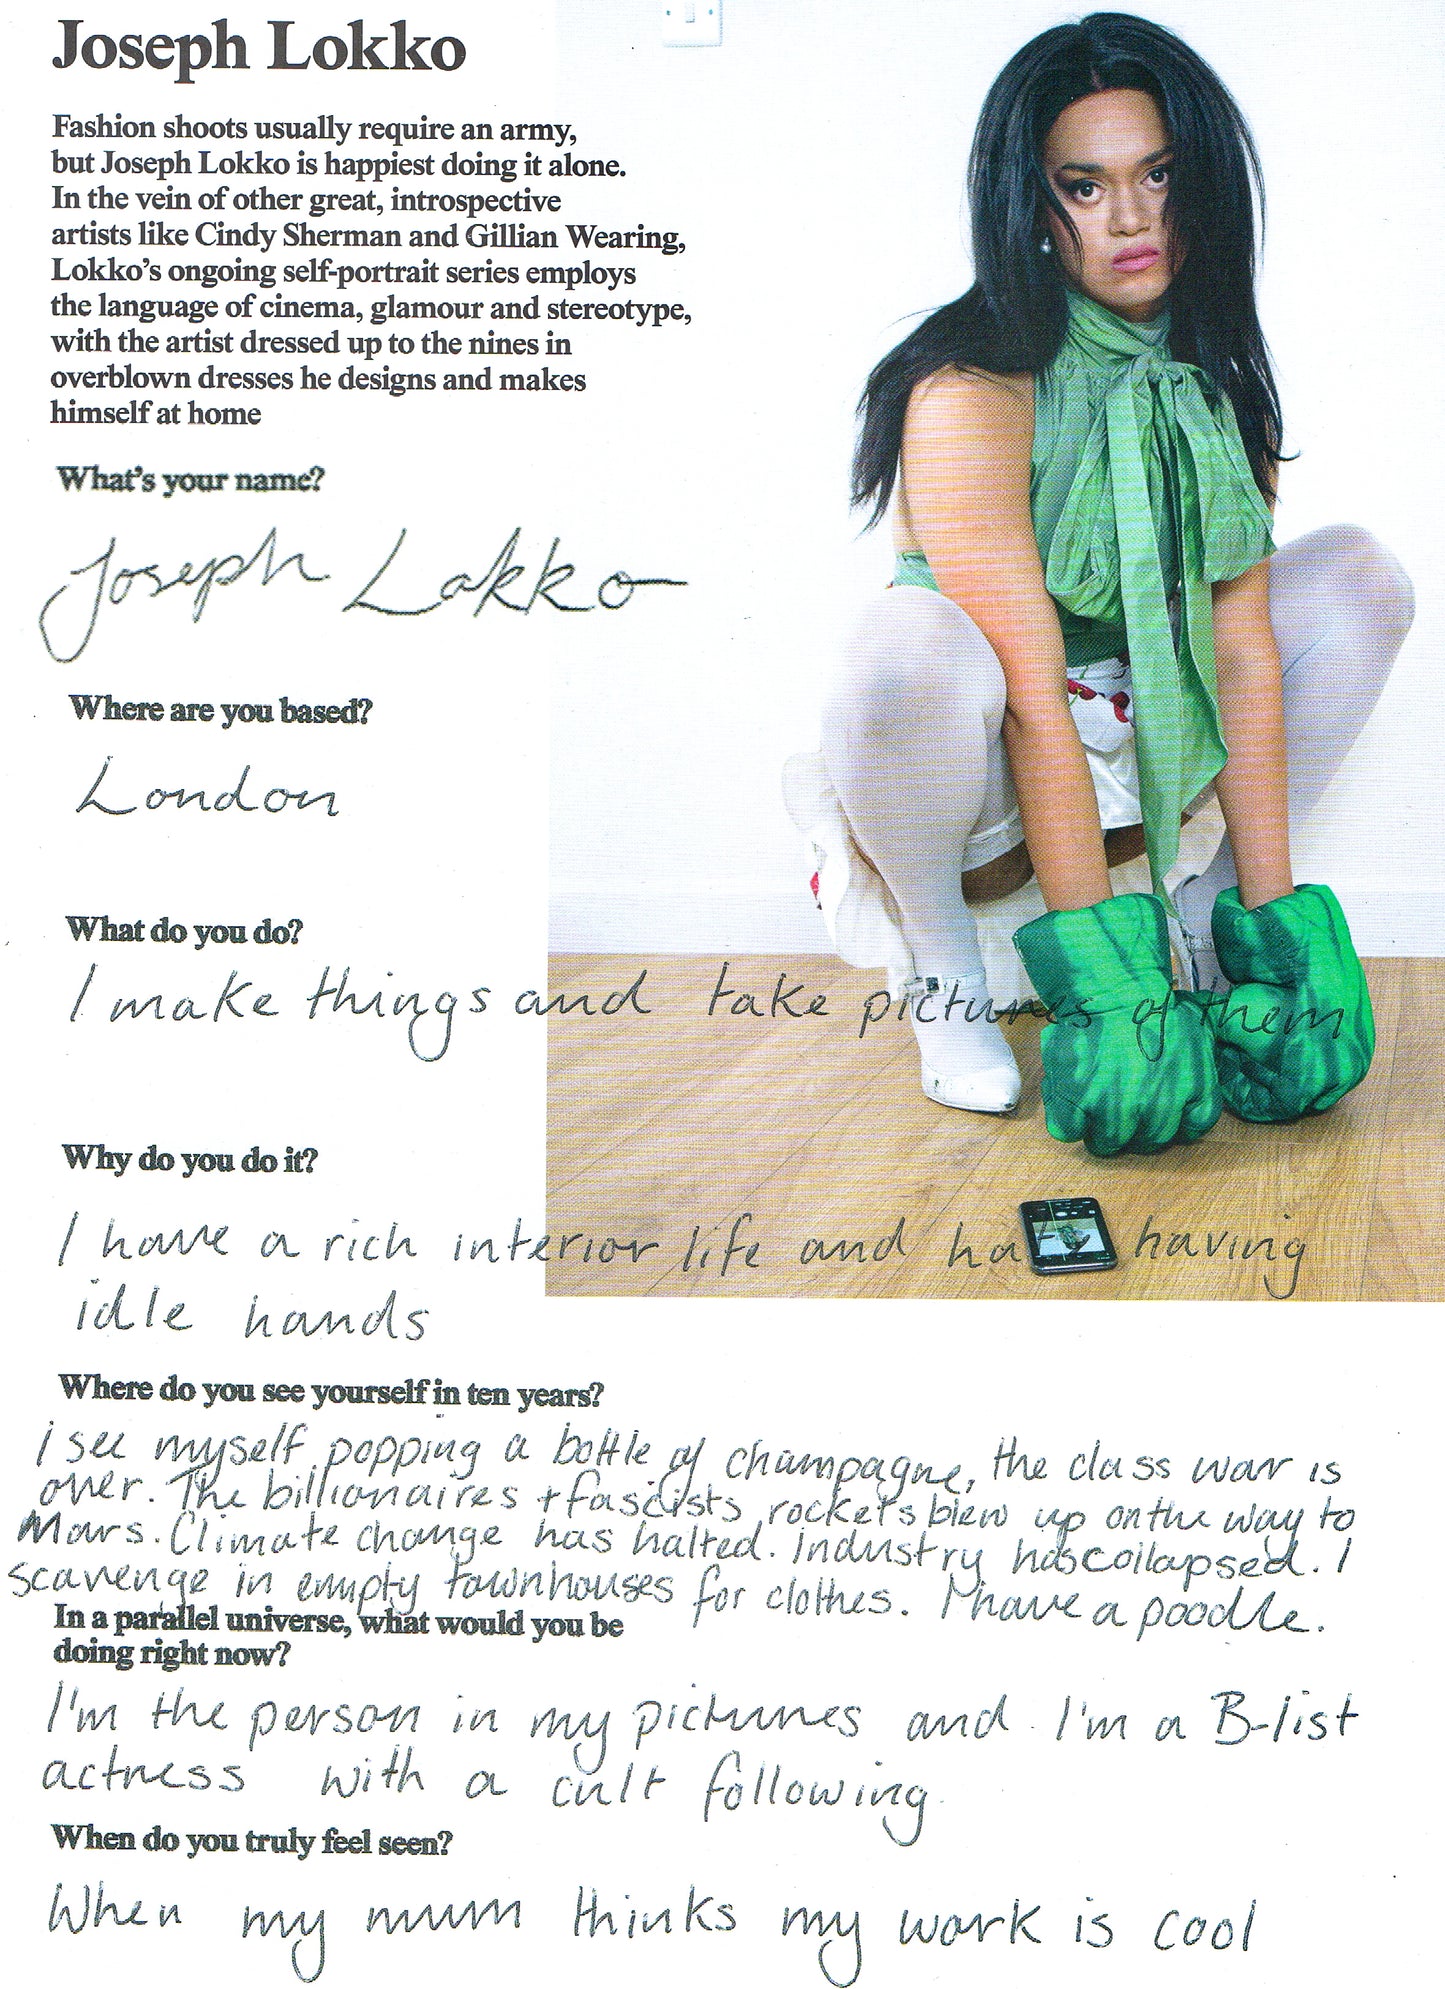 Joseph Lokko
Fashion shoots usually require an army,
but Joseph Lokko is happiest doing it alone.
In the vein of other great, introspective
artists like Cindy Sherman and Gillian Wearing,
Lokko's ongoing self-portrait series employs
the language of cinema, glamour and stereotype,
with the artist dressed up to the nines in
overblown dresses he designs and makes
himself at home
What's your name?
Joseph Lokko
Where are you based?
London
What do you do?
I make things and take pictures of them
Why do you do it?
I have a rich interior life and hate having
idle hands
Where do you see yourself in ten years?
I see myself popping a bottle of champagne, the class war is
over. The billionaires + fascists rockets blew up on the way to
Mars. Climate change has halted. Industry has collapsed. I
scavenge in empty townhouses for clothes. I have a poodle.
In a parallel universe, what would you be
doing right now?
I'm the person in my pictures and I'm a B-list
actress with a cult following
When do you truly feel seen?
When my mum thinks my work is cool